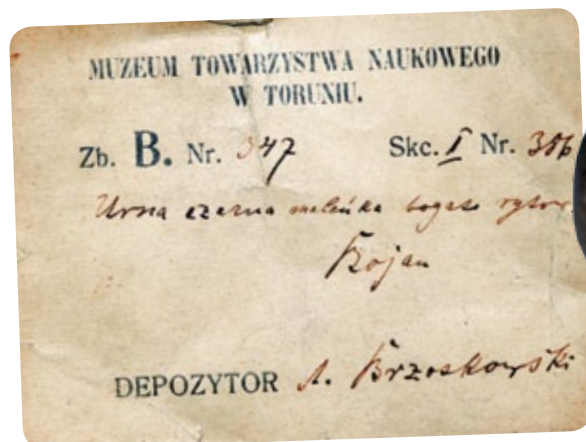 MUZEUM TOWARZYSTWA NAUKOWEGO
W TORUNIU.
Zb. B. Nr. 347 Skc. I Nr.
Urna czarna maleńka bogato
DEPOZYTOR A. Brzoskowski